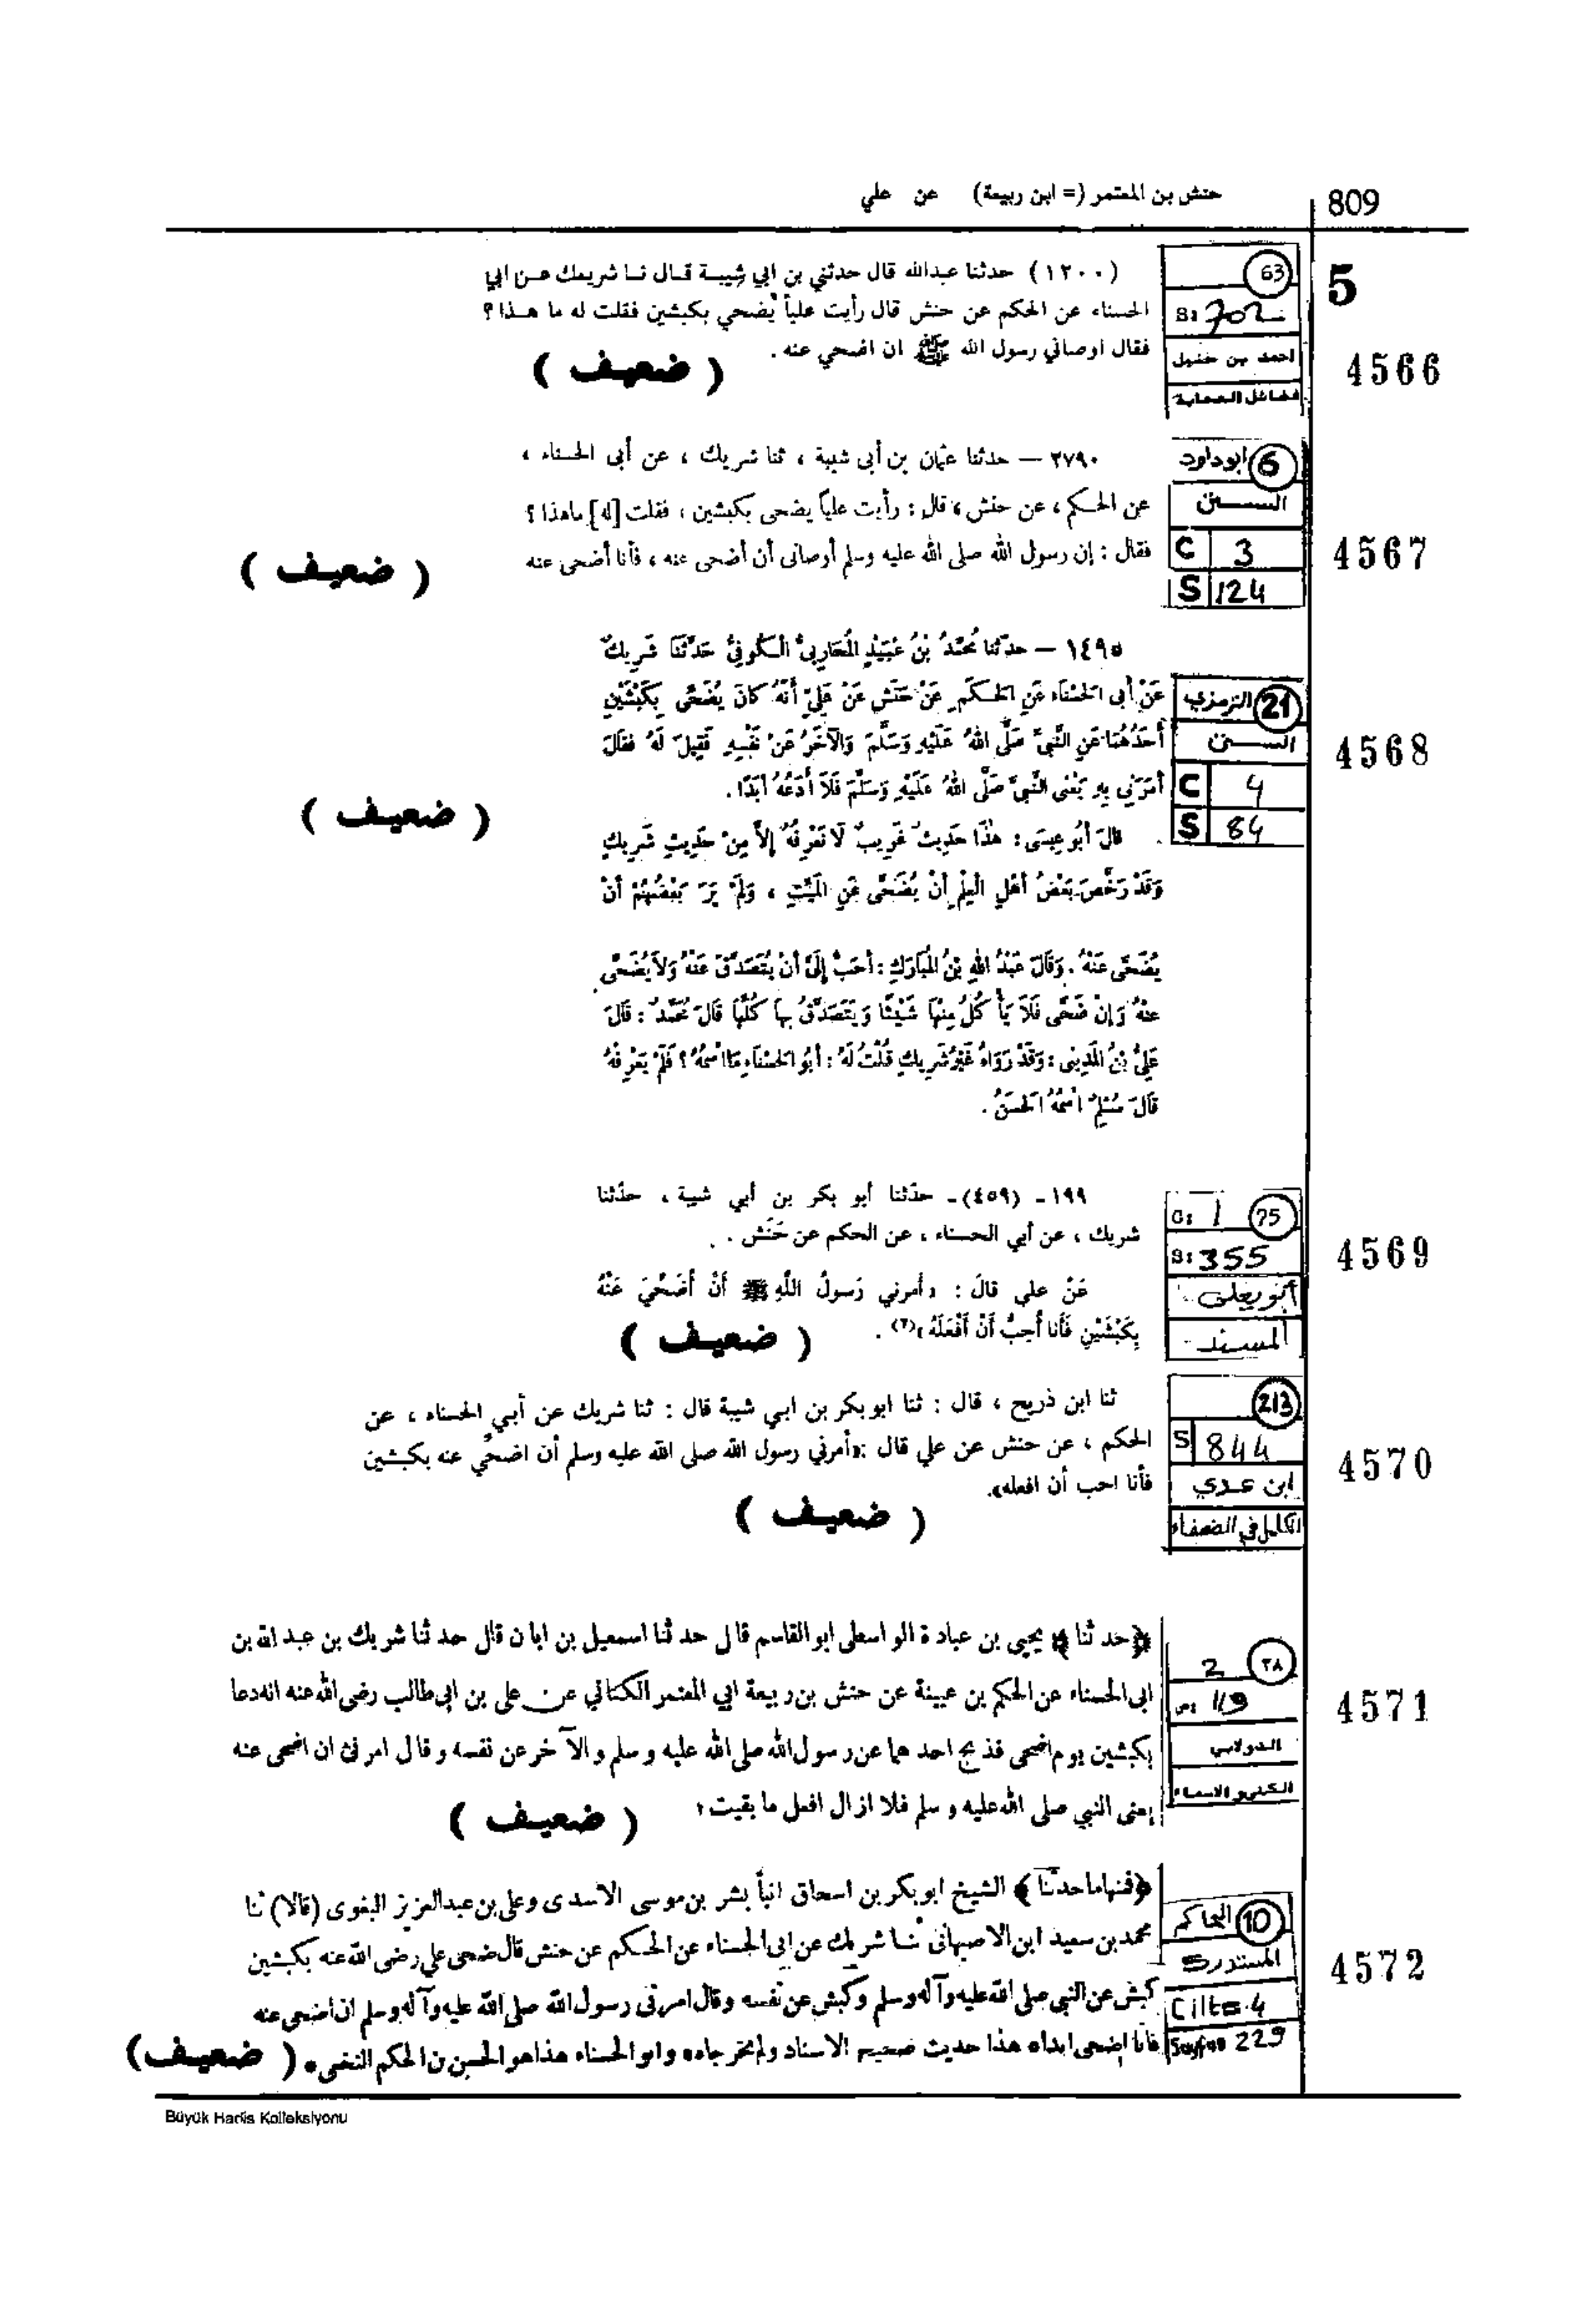 حنش بن المعتمر (= ابن ربيعة) عن علي
809
5
63
S: 702
احمد بن حنبل
فضائل الصحابة
4566
(١٢٠٠) حدثنا عبدالله قال حدثني بن ابي شيبة قال نا شريك عن ابي
الحسناء عن الحكم عن حنش قال رأيت علياً يضحي بكبشين فقلت له ما هذا ؟
فقال اوصاني رسول الله ﷺ ان اضحي عنه .
( ضعيف )
6 ابوداود
السنن
C 3
S 124
4567
٢٧٩٠ – حدثنا عثمان بن أبى شيبة ، ثنا شريك ، عن أبى الحسناء ،
عن الحكم ، عن حنش ، قال : رأيت علياً يضحى بكبشين ، فقلت [له] ماهذا ؟
فقال : إن رسول الله صلى الله عليه وسلم أوصانى أن أضحى عنه ، فأنا أضحى عنه
( ضعيف )
21 الترمذي
السنن
C 4
S 84
4568
١٤٩٥ – حدّثنا مُحَمَّدُ بْنُ عُبَيْدٍ الْمُحَارِبِىُّ الْكُوفِىُّ حَدَّثَنَا شَرِيكٌ
عَنْ أَبِى الْحَسْنَاءِ عَنِ الْحَكَمِ عَنْ حَنَشٍ عَنْ عَلِىٍّ أَنَّهُ كَانَ يُضَحِّى بِكَبْشَيْنِ
أَحَدُهُمَا عَنِ النَّبِىِّ صَلَّى اللهُ عَلَيْهِ وَسَلَّمَ وَالآخَرُ عَنْ نَفْسِهِ فَقِيلَ لَهُ فَقَالَ
أَمَرَنِي بِهِ يَعْنِى النَّبِىَّ صَلَّى اللهُ عَلَيْهِ وَسَلَّمَ فَلَا أَدَعُهُ أَبَدًا .
( ضعيف )
قالَ أَبُو عِيسَى : هٰذَا حَدِيثٌ غَرِيبٌ لَا نَعْرِفُهُ إِلاَّ مِنْ حَدِيثِ شَرِيكٍ
وَقَدْ رَخَّصَ بَعْضُ أَهْلِ الْعِلْمِ أَنْ يُضَحَّى عَنِ الْمَيِّتِ ، وَلَمْ يَرَ بَعْضُهُمْ أَنْ
يُضَحَّى عَنْهُ . وَقَالَ عَبْدُ اللهِ بْنُ الْمُبَارَكِ : أَحَبُّ إِلَىَّ أَنْ يُتَصَدَّقَ عَنْهُ وَلَا يُضَحَّى
عَنْهُ وَإِنْ ضَحَّى فَلَا يَأْكُلُ مِنْهَا شَيْئًا وَيَتَصَدَّقُ بِهَا كُلِّهَا قَالَ مُحَمَّدٌ : قَالَ
عَلِىُّ بْنُ الْمَدِينِى : وَقَدْ رَوَاهُ غَيْرُ شَرِيكٍ قُلْتُ لَهُ : أَبُو الْحَسْنَاءِ مَا اسْمُهُ ؟ فَلَمْ يَعْرِفْهُ
قَالَ مُسْلِمٌ اسْمُهُ الْحَسَنُ .
C: 1 75
S: 355
أبو يعلى
المسند
4569
١٩٩ - (٤٥٩) - حدّثنا أبو بكر بن أبي شيبة ، حدّثنا
شريك ، عن أبي الحسناء ، عن الحكم عن حَنَش .
عَنْ علي قالَ : «أَمرني رَسولُ اللَّهِ ﷺ أَنْ أُضَحِّيَ عَنْهُ
بِكَبْشَيْنِ فَأَنا أُحِبُّ أَنْ أَفْعَلَهُ»(٢) .
( ضعيف )
213
S 844
ابن عدي
الكامل في الضعفاء
4570
ثنا ابن ذريح ، قال : ثنا ابو بكر بن ابي شيبة قال : ثنا شريك عن أبي الحسناء ، عن
الحكم ، عن حنش عن علي قال : «أمرني رسول الله صلى الله عليه وسلم أن اضحّي عنه بكبشين
فأنا احب أن افعله».
( ضعيف )
2 ٢٨
س: 119
الدولابي
الكنى والاسماء
4571
﴿حدثنا﴾ يحيى بن عبادة الواسطى ابو القاسم قال حدثنا اسمعيل بن ابان قال حدثنا شريك بن عبد الله بن
ابى الحسناء عن الحكم بن عيينة عن حنش بن ربيعة ابي المعتمر الكناني عن على بن ابى طالب رضى الله عنه انه دعا
بكبشين يوم اضحى فذبح احدهما عن رسول الله صلى الله عليه وسلم والآخر عن نفسه وقال امرنى ان اضحى عنه
يعنى النبي صلى الله عليه وسلم فلا ازال افعل ما بقيت ؛
( ضعيف )
10 الحاكم
المستدرك
Cilt= 4
Sayfa= 229
4572
﴿فمنها ما حدثنا﴾ الشيخ ابو بكر بن اسحاق انبأ بشر بن موسى الاسدى وعلى بن عبد العزيز البغوى (قالا) ثنا
محمد بن سعيد ابن الاصبهانى ثنا شريك عن ابى الحسناء عن الحكم عن حنش قال ضحى علي رضى الله عنه بكبشين
كبش عن النبي صلى الله عليه وآله وسلم وكبش عن نفسه وقال امرنى رسول الله صلى الله عليه وآله وسلم ان اضحى عنه
فانا اضحى ابداه هذا حديث صحيح الاسناد ولم يخرجاه وابو الحسناء هذا هو الحسن بن الحكم النخعى • ( ضعيف )
Büyük Hadis Kolleksiyonu